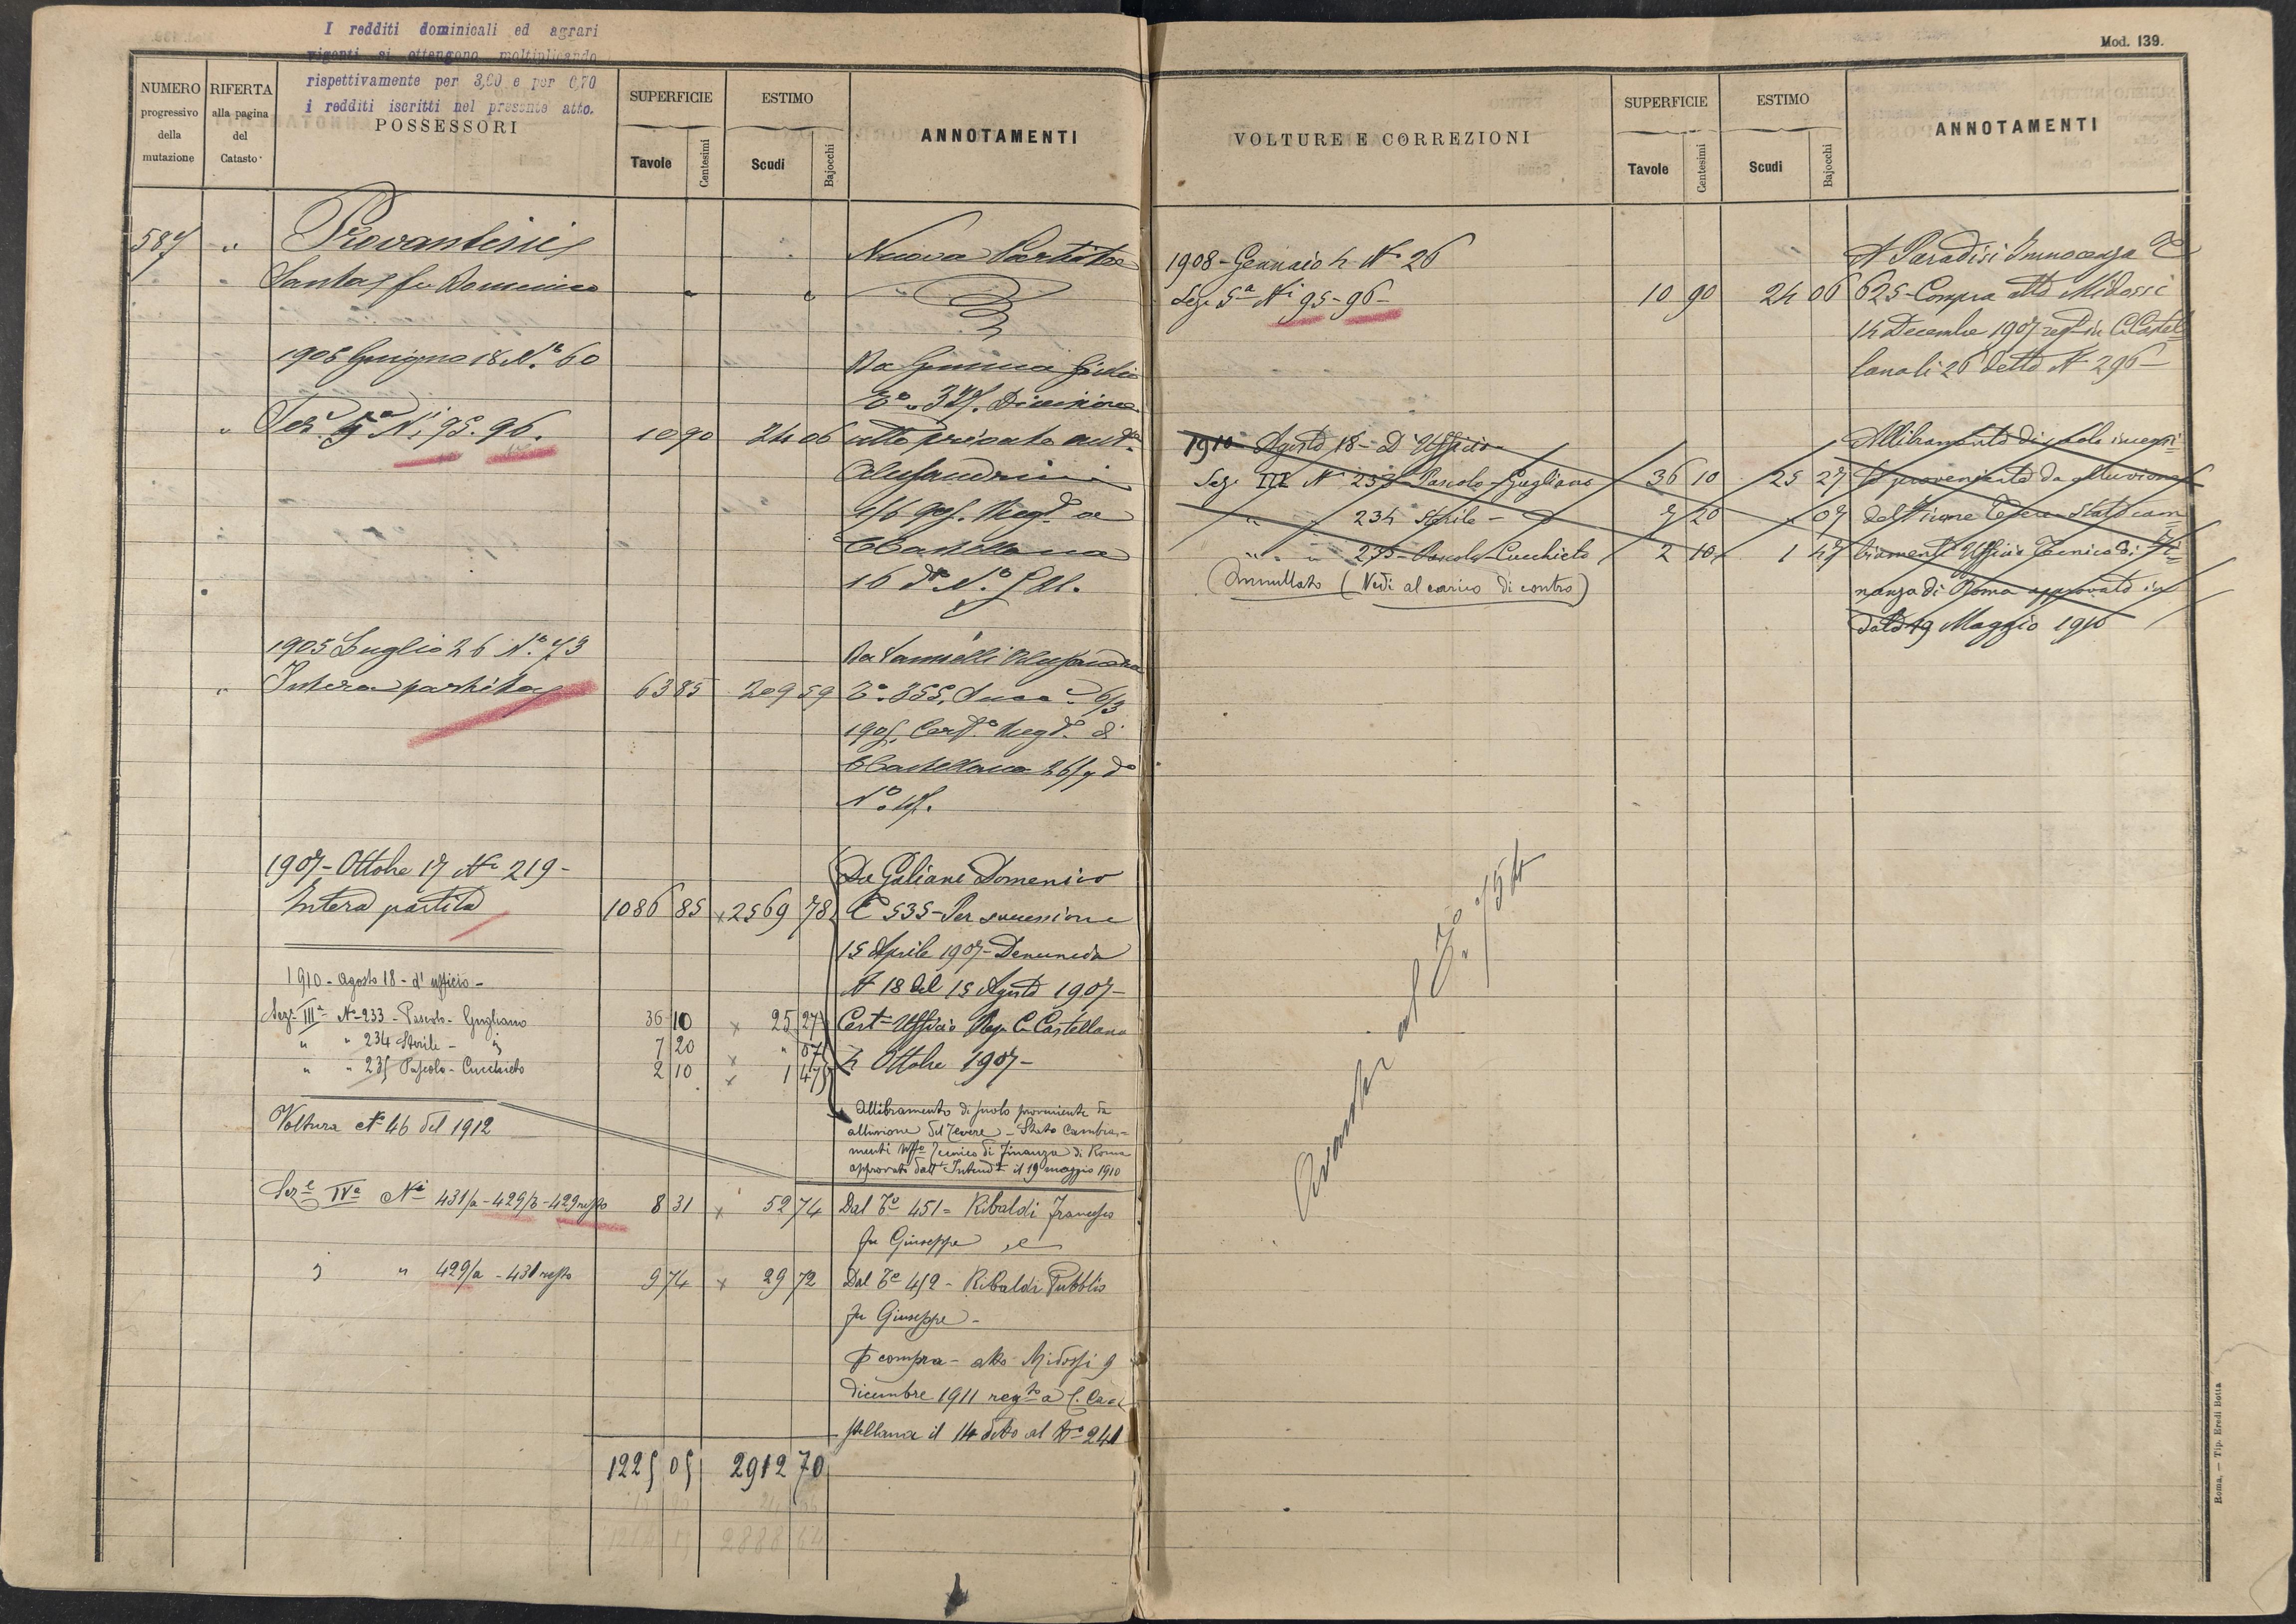 I redditi dominicali ed agrari
vigenti si ottengono moltiplicando
rispettivamente per 3,00 e per 0,70
i redditi iscritti nel presente atto.
NUMERO progressivo della mutazione
RIFERTA alla pagina del Catasto
POSSESSORI
SUPERFICIE
Tavole
Centesimi
ESTIMO
Scudi
Bajocchi
ANNOTAMENTI
587 "
Santa fu Domenico
Nuova Partita
1905 Giugno 18 N.° 60
Sez. 5a Ni 95. 96. 10 90 24 06
Da Gemma Giulia
T.° 327. Divisione
atto privato
16 d.°
1905 Luglio 26 N.° 73
Intera partita 63 85 209 59
Da Alessandra
T.° 355.
Castellana 26/7 d°
1907 - Ottobre 17 N. 219 -
Intera partita 1086 85 x 2569 78
Da Galiani Domenico
T° 535 - Per successione
15 Aprile 1907 - Denuncia
N 18 del 15 Agosto 1907 -
Cert. Ufficio Reg. C. Castellana
4 Ottobre 1907 -
1910 - Agosto 18 - d'ufficio -
Sez. IIIa No 233 - Pascolo - Gugliano 36 10 x 25 27
" " 234 Sterile - " 7 20 x " 07
" " 235 Pascolo - Cucchieto 2 10 x 1 47
Allibramento di suolo proveniente da
alluvione del Tevere - Stato Cambia-
menti Uffo Tecnico di Finanza di Roma
approvato dall' Intendza il 19 maggio 1910
Voltura N° 46 del 1912
Seze IVa Ni 431/a - 429/b - 429 resto 8 31 x 52 74
Dal T° 451 = Ribaldi Francesco
fu Giuseppe e
" " 429/a - 431 resto 9 74 x 29 72
Dal T° 452 - Ribaldi Pubblio
fu Giuseppe -
p compra - atto Midossi 9
dicembre 1911 regto a C. Ca=
stellana il 14 detto al N° 241
1225 05 2912 70
Mod. 139.
VOLTURE E CORREZIONI
SUPERFICIE
Tavole
Centesimi
ESTIMO
Scudi
Bajocchi
ANNOTAMENTI
1908 - Gennaio 4 N. 26
Sez. 5a Ni 95 - 96 - 10 90 24 06
A Paradisi Innocenza T°
625 - Compra atto Midossi
14 Decembre 1907 regto in C. Castel
lana li 26 detto N 296 -
1910 Agosto 18 - D'Ufficio
Sez. III N 233 Pascolo - Gugliano 36 10 25 27
" " 234 Sterile - " 7 20 " 07
" " " 235 - Pascolo - Cucchieto 2 10 1 47
Annullato (Vedi al carico di contro)
Allibramento di suolo
proveniente da alluvione
del Fiume Tevere Stato cam
biamenti Ufficio Tecnico di Fi=
nanza di Roma approvato in
data 19 Maggio 1910
Roma, — Tip. Eredi Botta